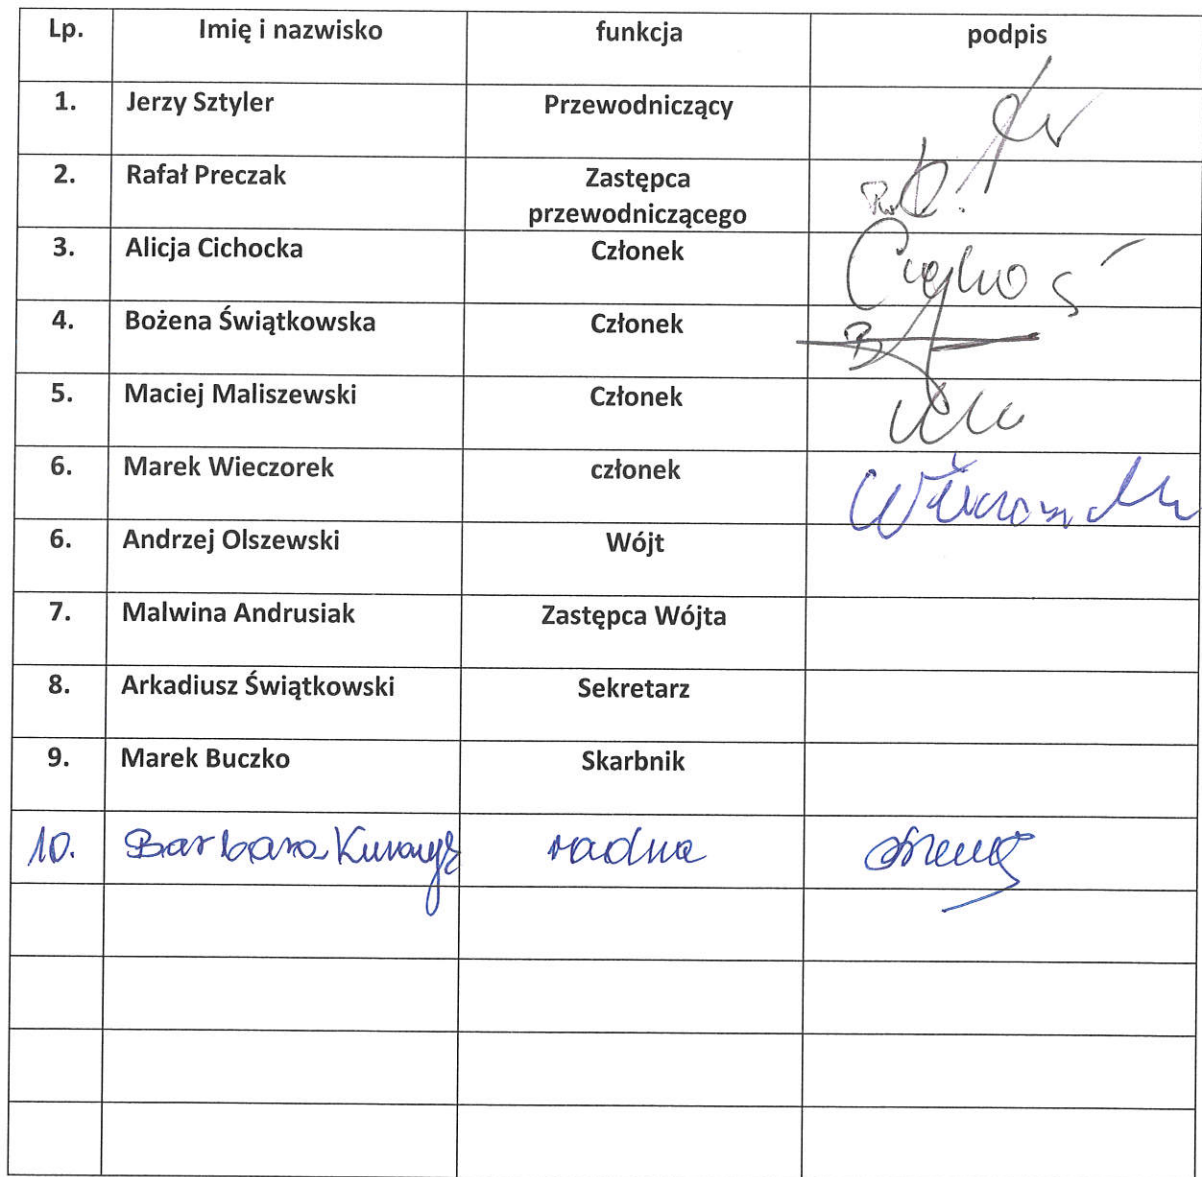 Lp. Imię i nazwisko funkcja podpis
1. Jerzy Sztyler Przewodniczący
2. Rafał Preczak Zastępca
przewodniczącego
3. Alicja Cichocka Członek
4. Bożena Świątkowska Członek
5. Maciej Maliszewski Członek
6. Marek Wieczorek członek
6. Andrzej Olszewski Wójt
7. Malwina Andrusiak Zastępca Wójta
8. Arkadiusz Świątkowski Sekretarz
9. Marek Buczko Skarbnik
10. Barbara radna